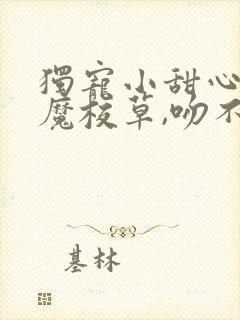 獨寵小甜心
魔校草,吻不
基林